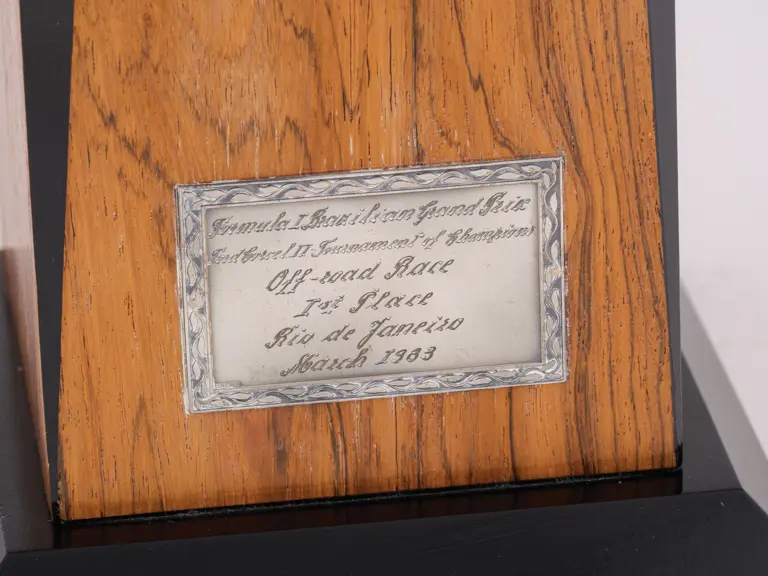 Formula I Brazilian Grand Prix
Ford Corcel II Tournament of Champions
Off-road Race
1st Place
Rio de Janeiro
March 1983